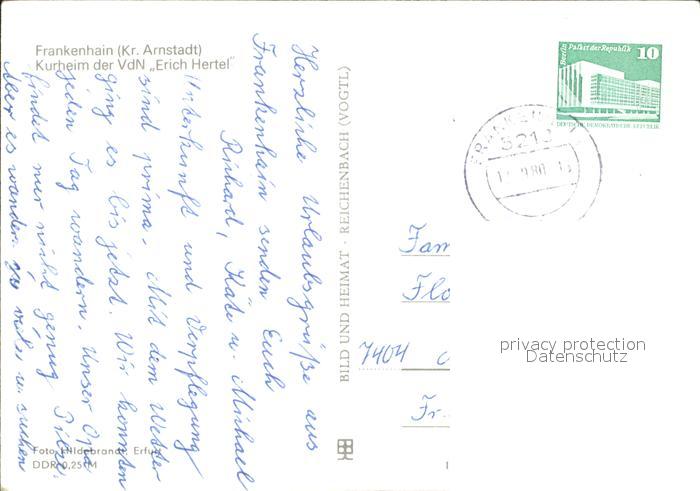 Frankenhain (Kr. Arnstadt)
Kurheim der VdN „Erich Hertel"
Herzliche Urlaubsgrüße aus
Frankenhain senden Euch
Richard, Käte u. Michael
Unterkunft und Verpflegung
sind prima. Mit dem Wetter
ging es bis jetzt. Wir konnten
jeden Tag wandern. Unser Opa
findet nur nicht genug Pilze.
Aber es wandern zu viele u. suchen
Foto Hildebrandt, Erfurt
DDR 0,25 M
BILD UND HEIMAT · REICHENBACH (VOGTL)
Berlin Palast der Republik 10
DEUTSCHE DEMOKRATISCHE REPUBLIK
FRANKEN
5213
9.80
Fam
Flo
7404
Fr.
privacy protection
Datenschutz